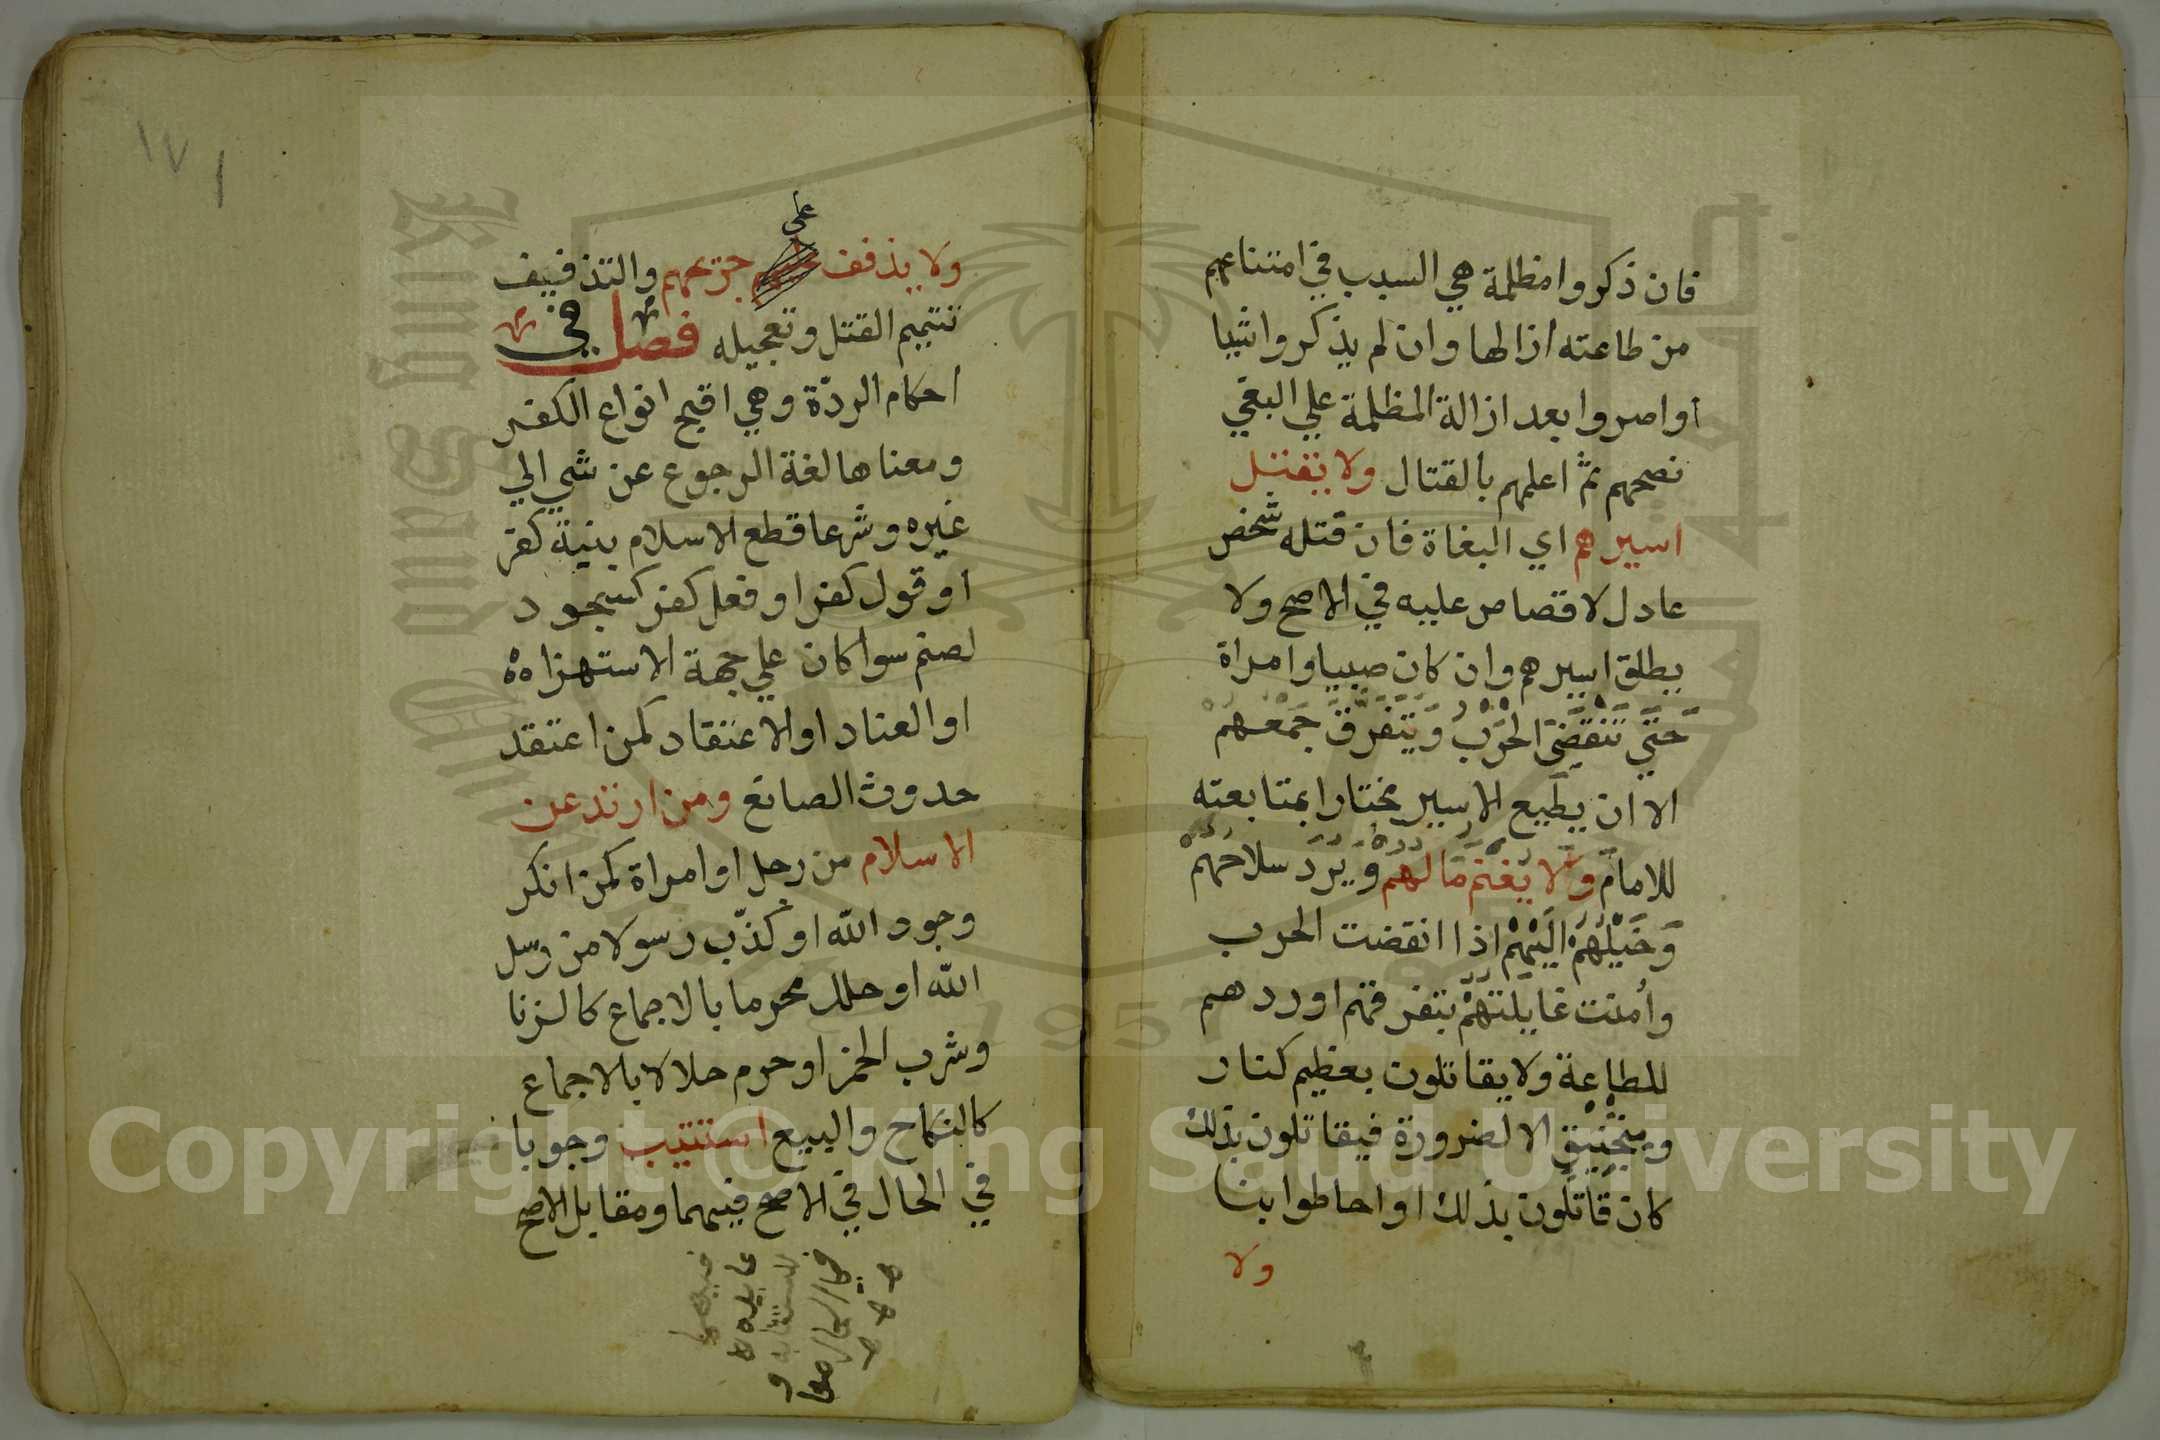 فان ذكروا مظلمة هي السبب في امتناعهم
من طاعته ازالها وان لم يذكروا شيا
او اصروا بعد ازالة المظلمة علي البغي
نصحهم ثم اعلمهم بالقتال ولا يقتل
اسيرهم اي البغاة فان قتله شخص
عادل لا قصاص عليه في الاصح ولا
يطلق اسيرهم وان كان صبيا وامراة
حَتَّي تَنْقَضَي الحَرْبُ وَيَتَفَرَّقَ جَمْعهُمْ
الا ان يطيع الاسير مختارا بمتابعته
للامام وَلَا يُغْنَمُ مَالهُمْ وَيُرَدُّ سلاحُهُمْ
وَخَيْلُهُمْ اِلَيْهِمْ اذا انقضت الحرب
وأمنت غايلتهُمْ بتفرقهم او ردهم
للطاعة ولا يقاتلون بعظيم كنار
ومنجنيق الا لضرورة فيقاتلون بذلك
كان قاتلون بذلك او احاطوا بنا
ولا
١٧١
ولا يذفف علي جريحهم والتذفيف
تتميم القتل وتعجيله فصل في
احكام الردّة وهي اقبح انواع الكفر
ومعناها لغة الرجوع عن شي الي
غيره وشرعا قطع الاسلام بنية كفر
او قول كفر او فعل كفر كسجود
لصنم سوا كان علي جهة الاستهزاه
او العناد او الاعتقاد كمن اعتقد
حدوث الصانع ومن ارتد عن
الاسلام من رجل او امراة كمن انكر
وجود الله او كذّب رسولا من رسل
الله او حلل محرما بالاجماع كالزنا
وشرب الخمر او حرم حلالا بالاجماع
كالنكاح والبيع استتيب وجوبا
في الحال في الاصح فيهما ومقابل الاصح
Copyright © King Saud University
1957